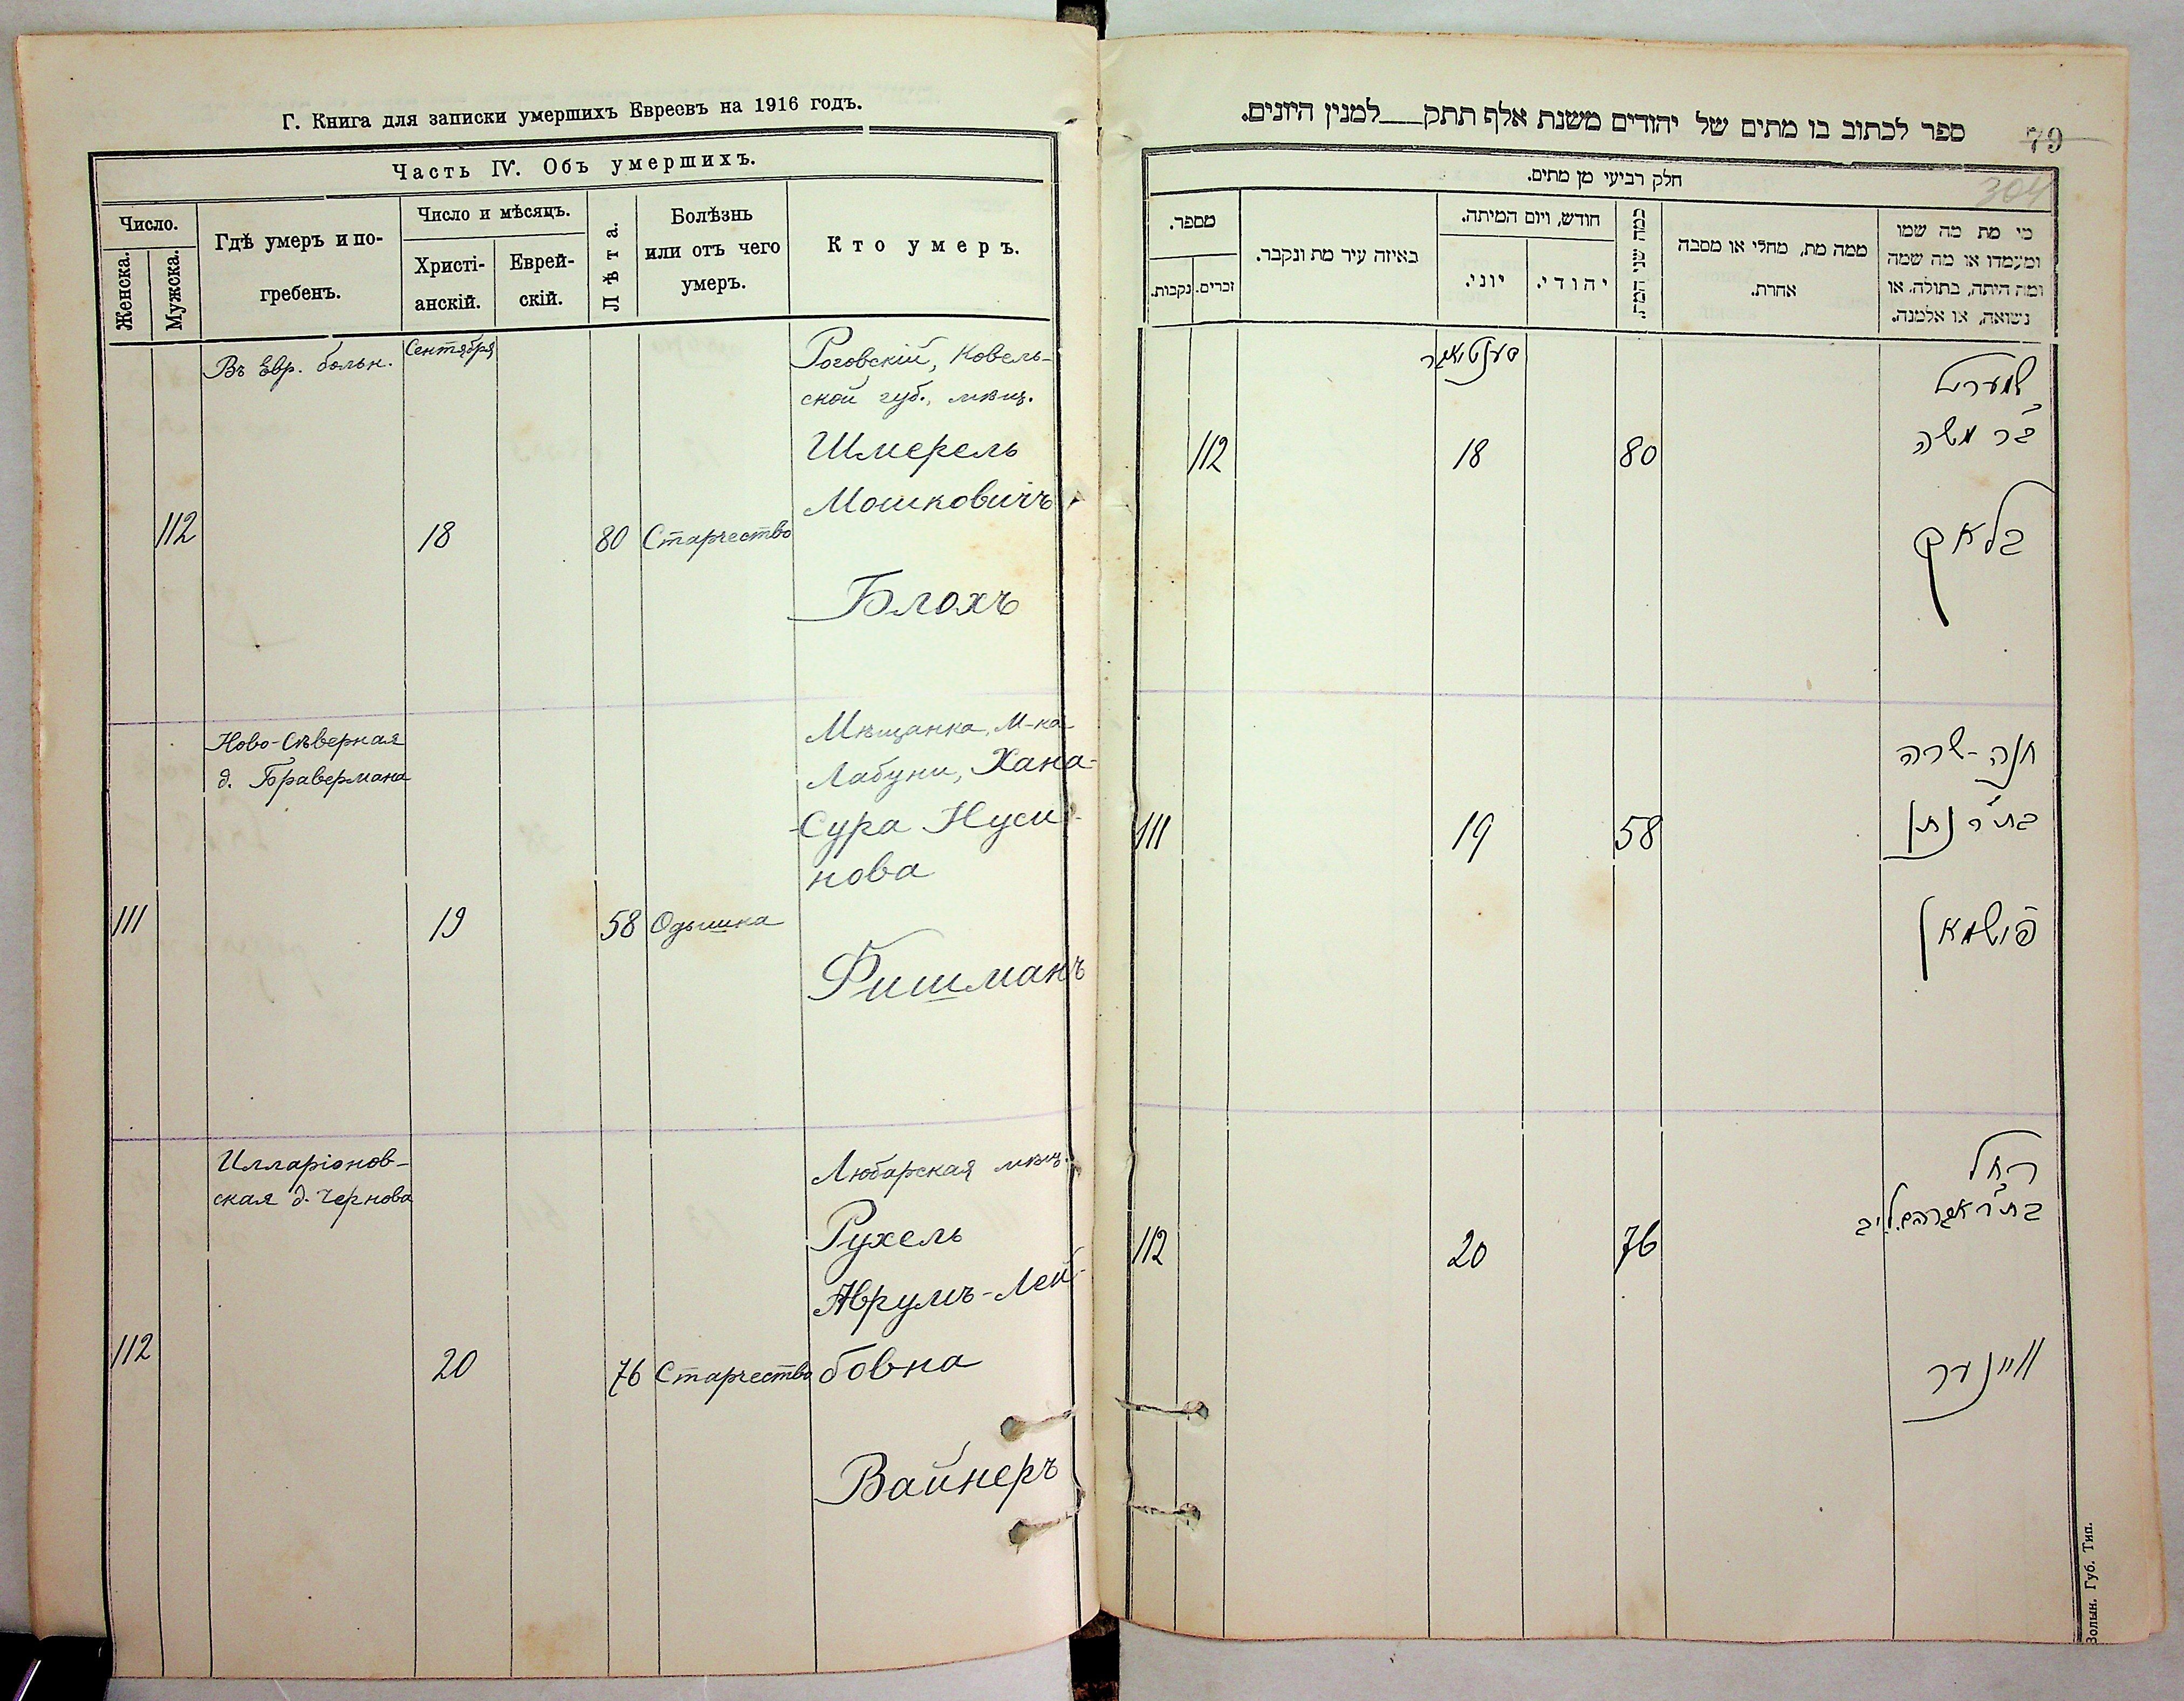 Г. Книга для записки умершихъ Евреевъ на 1916 годъ.
Часть IV. Объ умершихъ.
Число.
Женска.
Мужска.
Гдѣ умеръ и по-
гребенъ.
Число и мѣсяцъ.
Христі-
анскій.
Еврей-
скій.
Лѣта.
Болѣзнь
или отъ чего
умеръ.
Кто умеръ.
Въ Евр. больн.
Сентября
Роговскій, Ковель-
ской губ., мѣщ.
Шмерель
Мошковичъ
112
18
80
Старчество
Блохъ
Ново-Сѣверная
д. Бравермана
Мѣщанка, м-ка
Лабуни, Хана-
-Сура Нуси-
нова
111
19
58
Одышка
Фишманъ
Илларіонов-
ская д. Чернова
Любарская мѣщ.
Рухель
Аврумъ-Лей-
бовна
112
20
76
Старчество
Вайнеръ
ספר לכתוב בו מתים של יהודים משנת אלף תתק___למנין היונים.
79
304
חלק רביעי מן מתים.
מספר.
נקבות.
זכרים.
באיזה עיר מת ונקבר.
חודש, ויום המיתה.
יוני.
יהודי.
כמה שני המת.
ממה מת, מחלי או מסבה
אחרת.
כי מת מה שמו
ומעמדו או מה שמה
ומה היתה, בתולה, או
נשואה, או אלמנה.
שמערל
ב״ר משה
112
18
80
בלאק
חנה-שרה
בת ר׳ נתן
111
19
58
פישמאן
רחל
בת ר׳ אברהם ליב
112
20
76
ווינער
Волын. Губ. Тип.